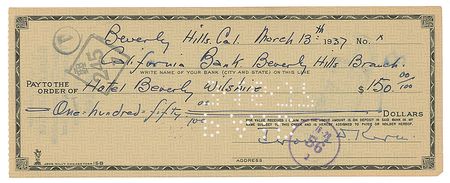 Beverly Hills, Cal. March 13th 1937 No. X
California Bank Beverly Hills Branch
WRITE NAME OF YOUR BANK (CITY AND STATE) ON THIS LINE
PAY TO THE ORDER OF Hotel Beverly Wilshire $150.00/100
One hundred fifty DOLLARS
FOR VALUE RECEIVED I CLAIM THAT THE ABOVE AMOUNT IS ON DEPOSIT IN SAID BANK IN
MY NAME SUBJECT TO THIS CHECK AND IS HEREBY ASSIGNED TO PAYEE OR HOLDER HEREOF.
Jerome D Kern
ADDRESS
245
56